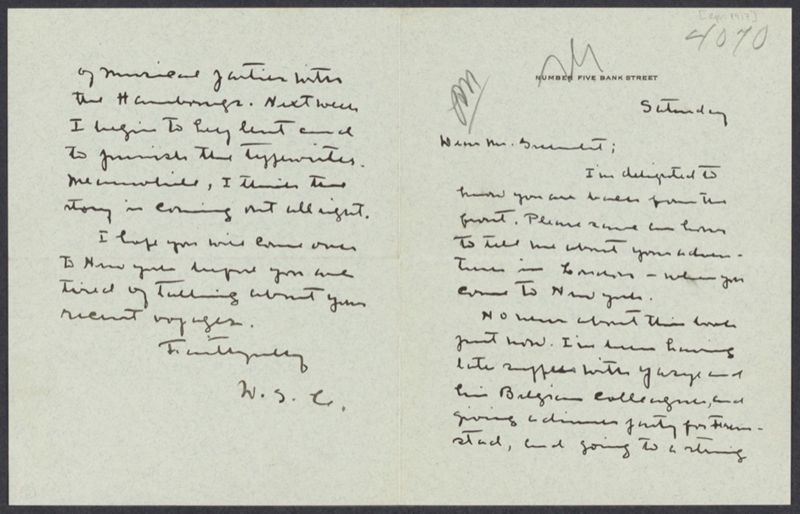 [Apr. 1917]
4070
NUMBER FIVE BANK STREET
Saturday
Dear Mr. Greenslet;
I'm delighted to
know you are back from the
front. Please save an hour
to tell me about your adven-
tures in London – when you
come to New York.
No news about this book
just now. I've been having
late suppers with Ysaye and
his Belgian colleagues, and
giving a dinner party for Frem-
stad, and going to a string
of musical parties with
the Hambourgs. Next week
I begin to keep lent and
to punish the typewriter.
Meanwhile, I think the
story is coming out all right.
I hope you will come over
to New York before you are
tired of talking about your
recent voyages.
Faithfully
W. S. C.